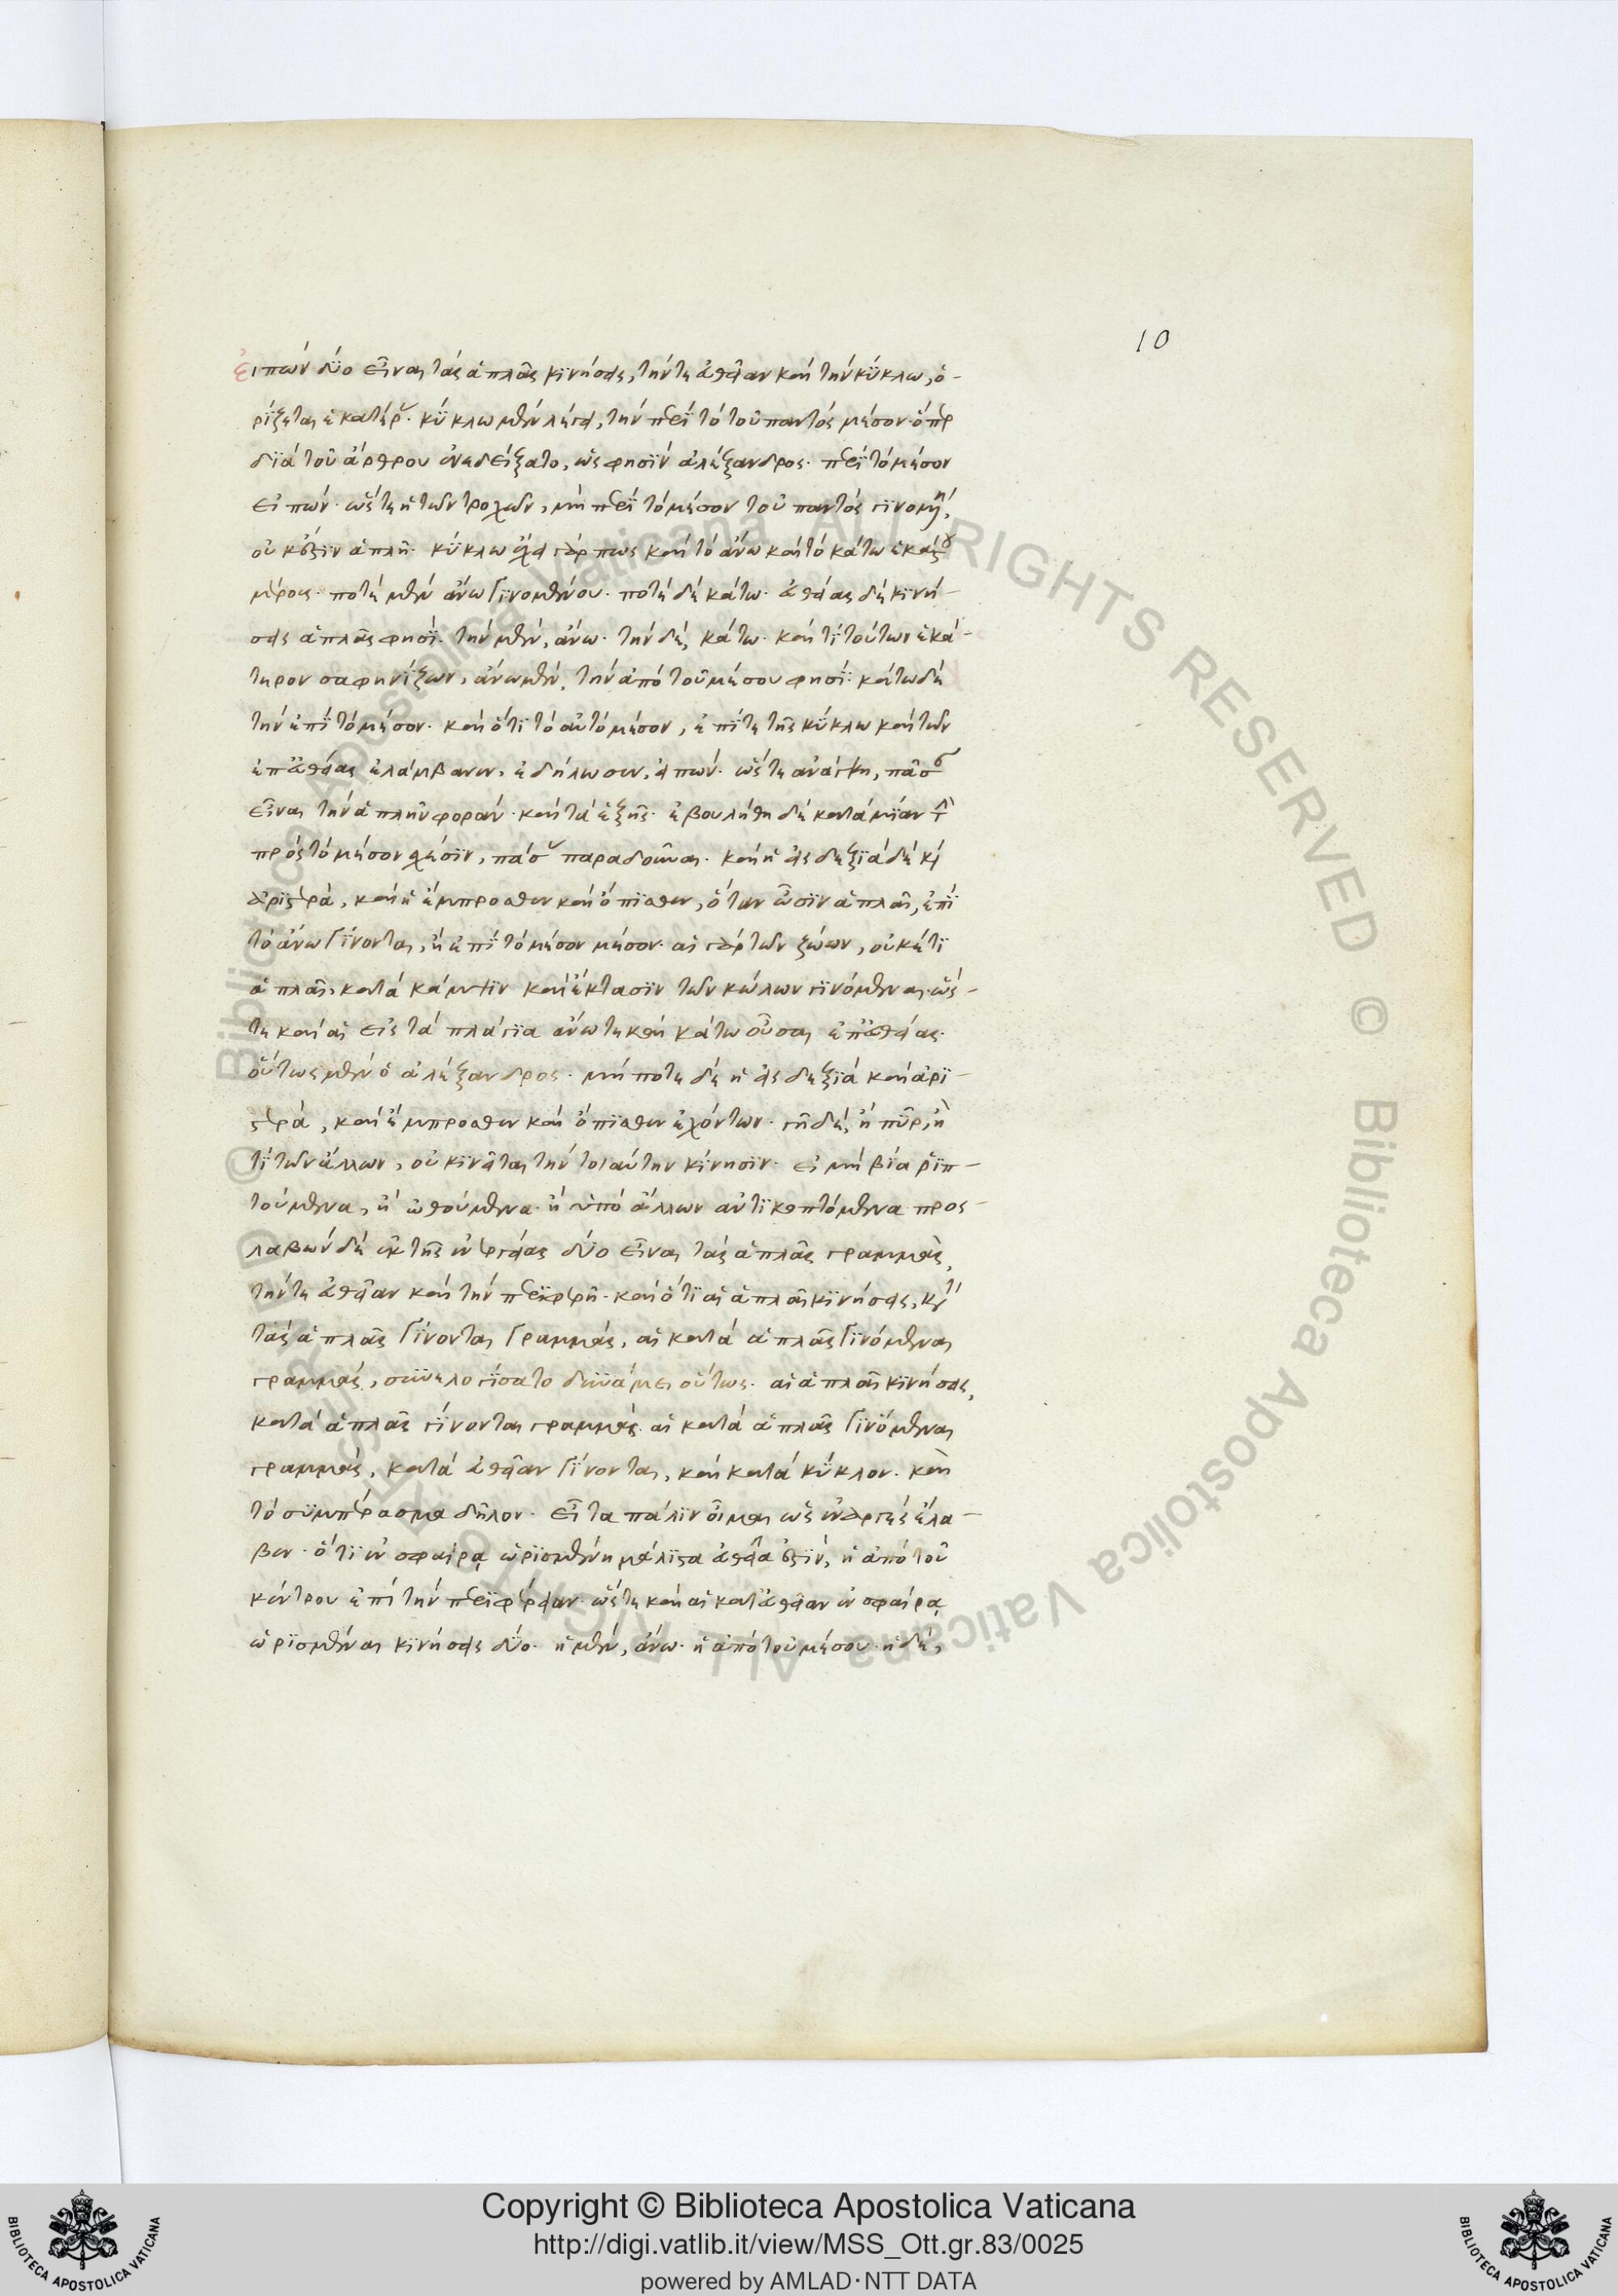 10
εἰπὼν δύο εἶναι τὰς ἁπλᾶς κινήσεις, τήν τε εὐθεῖαν καὶ τὴν κύκλω, ὁ-
ρίζεται ἑκατέραν. κύκλω μὲν λέγει, τὴν περὶ τὸ τοῦ παντὸς μέσον. ὅπερ
διὰ τοῦ ἄρθρου ἐνεδείξατο, ὥς φησιν ἀλέξανδρος. περὶ τὸ μέσον
εἰπών. ὥστε ἡ τῶν τροχῶν, μὴ περὶ τὸ μέσον τοῦ παντὸς γινομένη,
οὐκ ἔστιν ἁπλῆ. κύκλω ἔχει γάρ πως καὶ τὸ ἄνω καὶ τὸ κάτω ἑκάστου
μέρους. ποτὲ μὲν ἄνω γινομένου. ποτὲ δὲ κάτω. εὐθείας δὲ κινή-
σεις ἁπλᾶς φησί. τὴν μὲν, ἄνω. τὴν δὲ, κάτω. καὶ τί τούτων ἑκά-
τερον σαφηνίζων, ἄνω μὲν, τὴν ἀπὸ τοῦ μέσου φησί. κάτω δὲ
τὴν ἐπὶ τὸ μέσον. καὶ ὅτι τὸ αὐτὸ μέσον, ἐπί τε τῆς κύκλω καὶ τῶν
ἐπ' εὐθείας ἐλάμβανεν, ἐδήλωσεν, εἰπών. ὥστε ἀνάγκη, πᾶσαν
εἶναι τὴν ἁπλῆν φοράν. καὶ τὰ ἑξῆς. ἐβουλήθη δὲ κατὰ μίαν τὴν
πρὸς τὸ μέσον σχέσιν, πάσας παραδοῦναι. καὶ ἡ εἰς δεξιὰ δὲ καὶ
ἀριστερὰ, καὶ ἡ ἔμπροσθεν καὶ ὄπισθεν, ὅταν ὦσιν ἁπλαῖ, ἐπὶ
τὸ ἄνω γίνονται, ἢ ἐπὶ τὸ μέσον μέσον. αἱ γὰρ τῶν ζώων, οὐκέτι
ἁπλαῖ, κατὰ κάμψιν καὶ ἔκτασιν τῶν κώλων γινόμεναι. ὥσ-
τε καὶ αἱ εἰς τὰ πλάγια ἄνω τε καὶ κάτω οὖσαι ἐπ' εὐθείας.
οὕτως μὲν ὁ ἀλέξανδρος. μήποτε δὲ ἡ εἰς δεξιὰ καὶ ἀρι-
στερὰ, καὶ ἔμπροσθεν καὶ ὄπισθεν ἐχόντων. γῆ δὲ, ἢ πῦρ, ἤ
τι τῶν ἄλλων, οὐ κινεῖται τὴν τοιαύτην κίνησιν. εἰ μὴ βία ῥιπ-
τούμενα, ἢ ὠθούμενα. ἢ ὑπὸ ἄλλων ἀντικοπτόμενα. προσ-
λαβὼν δὲ ἐκ τῆς ἐναργείας δύο εἶναι τὰς ἁπλᾶς γραμμὰς,
τήν τε εὐθεῖαν καὶ τὴν περιφερῆ. καὶ ὅτι αἱ ἁπλαῖ κινήσεις, κατὰ
τὰς ἁπλᾶς γίνονται γραμμάς, αἱ κατὰ ἁπλᾶς γινόμεναι
γραμμάς, συνελογίσατο δυνάμει οὕτως. αἱ ἁπλαῖ κινήσεις,
κατὰ ἁπλᾶς γίνονται γραμμάς. αἱ κατὰ ἁπλᾶς γινόμεναι
γραμμάς, κατὰ εὐθεῖαν γίνονται, καὶ κατὰ κύκλον. καὶ
τὸ συμπέρασμα δῆλον. εἶτα πάλιν οἶμαι ὡς ἐναργὲς ἔλα-
βεν. ὅτι ἐν σφαίρᾳ ὡρισμένη μάλιστα εὐθεῖα ἐστὶν, ἡ ἀπὸ τοῦ
κέντρου ἐπὶ τὴν περιφέρειαν. ὥστε καὶ αἱ κατ' εὐθεῖαν ἐν σφαίρᾳ
ὡρισμέναι κινήσεις δύο. ἡ μὲν, ἄνω. ἡ ἀπὸ τοῦ μέσου. ἡ δὲ,
Copyright © Biblioteca Apostolica Vaticana
http://digi.vatlib.it/view/MSS_Ott.gr.83/0025
powered by AMLAD·NTT DATA